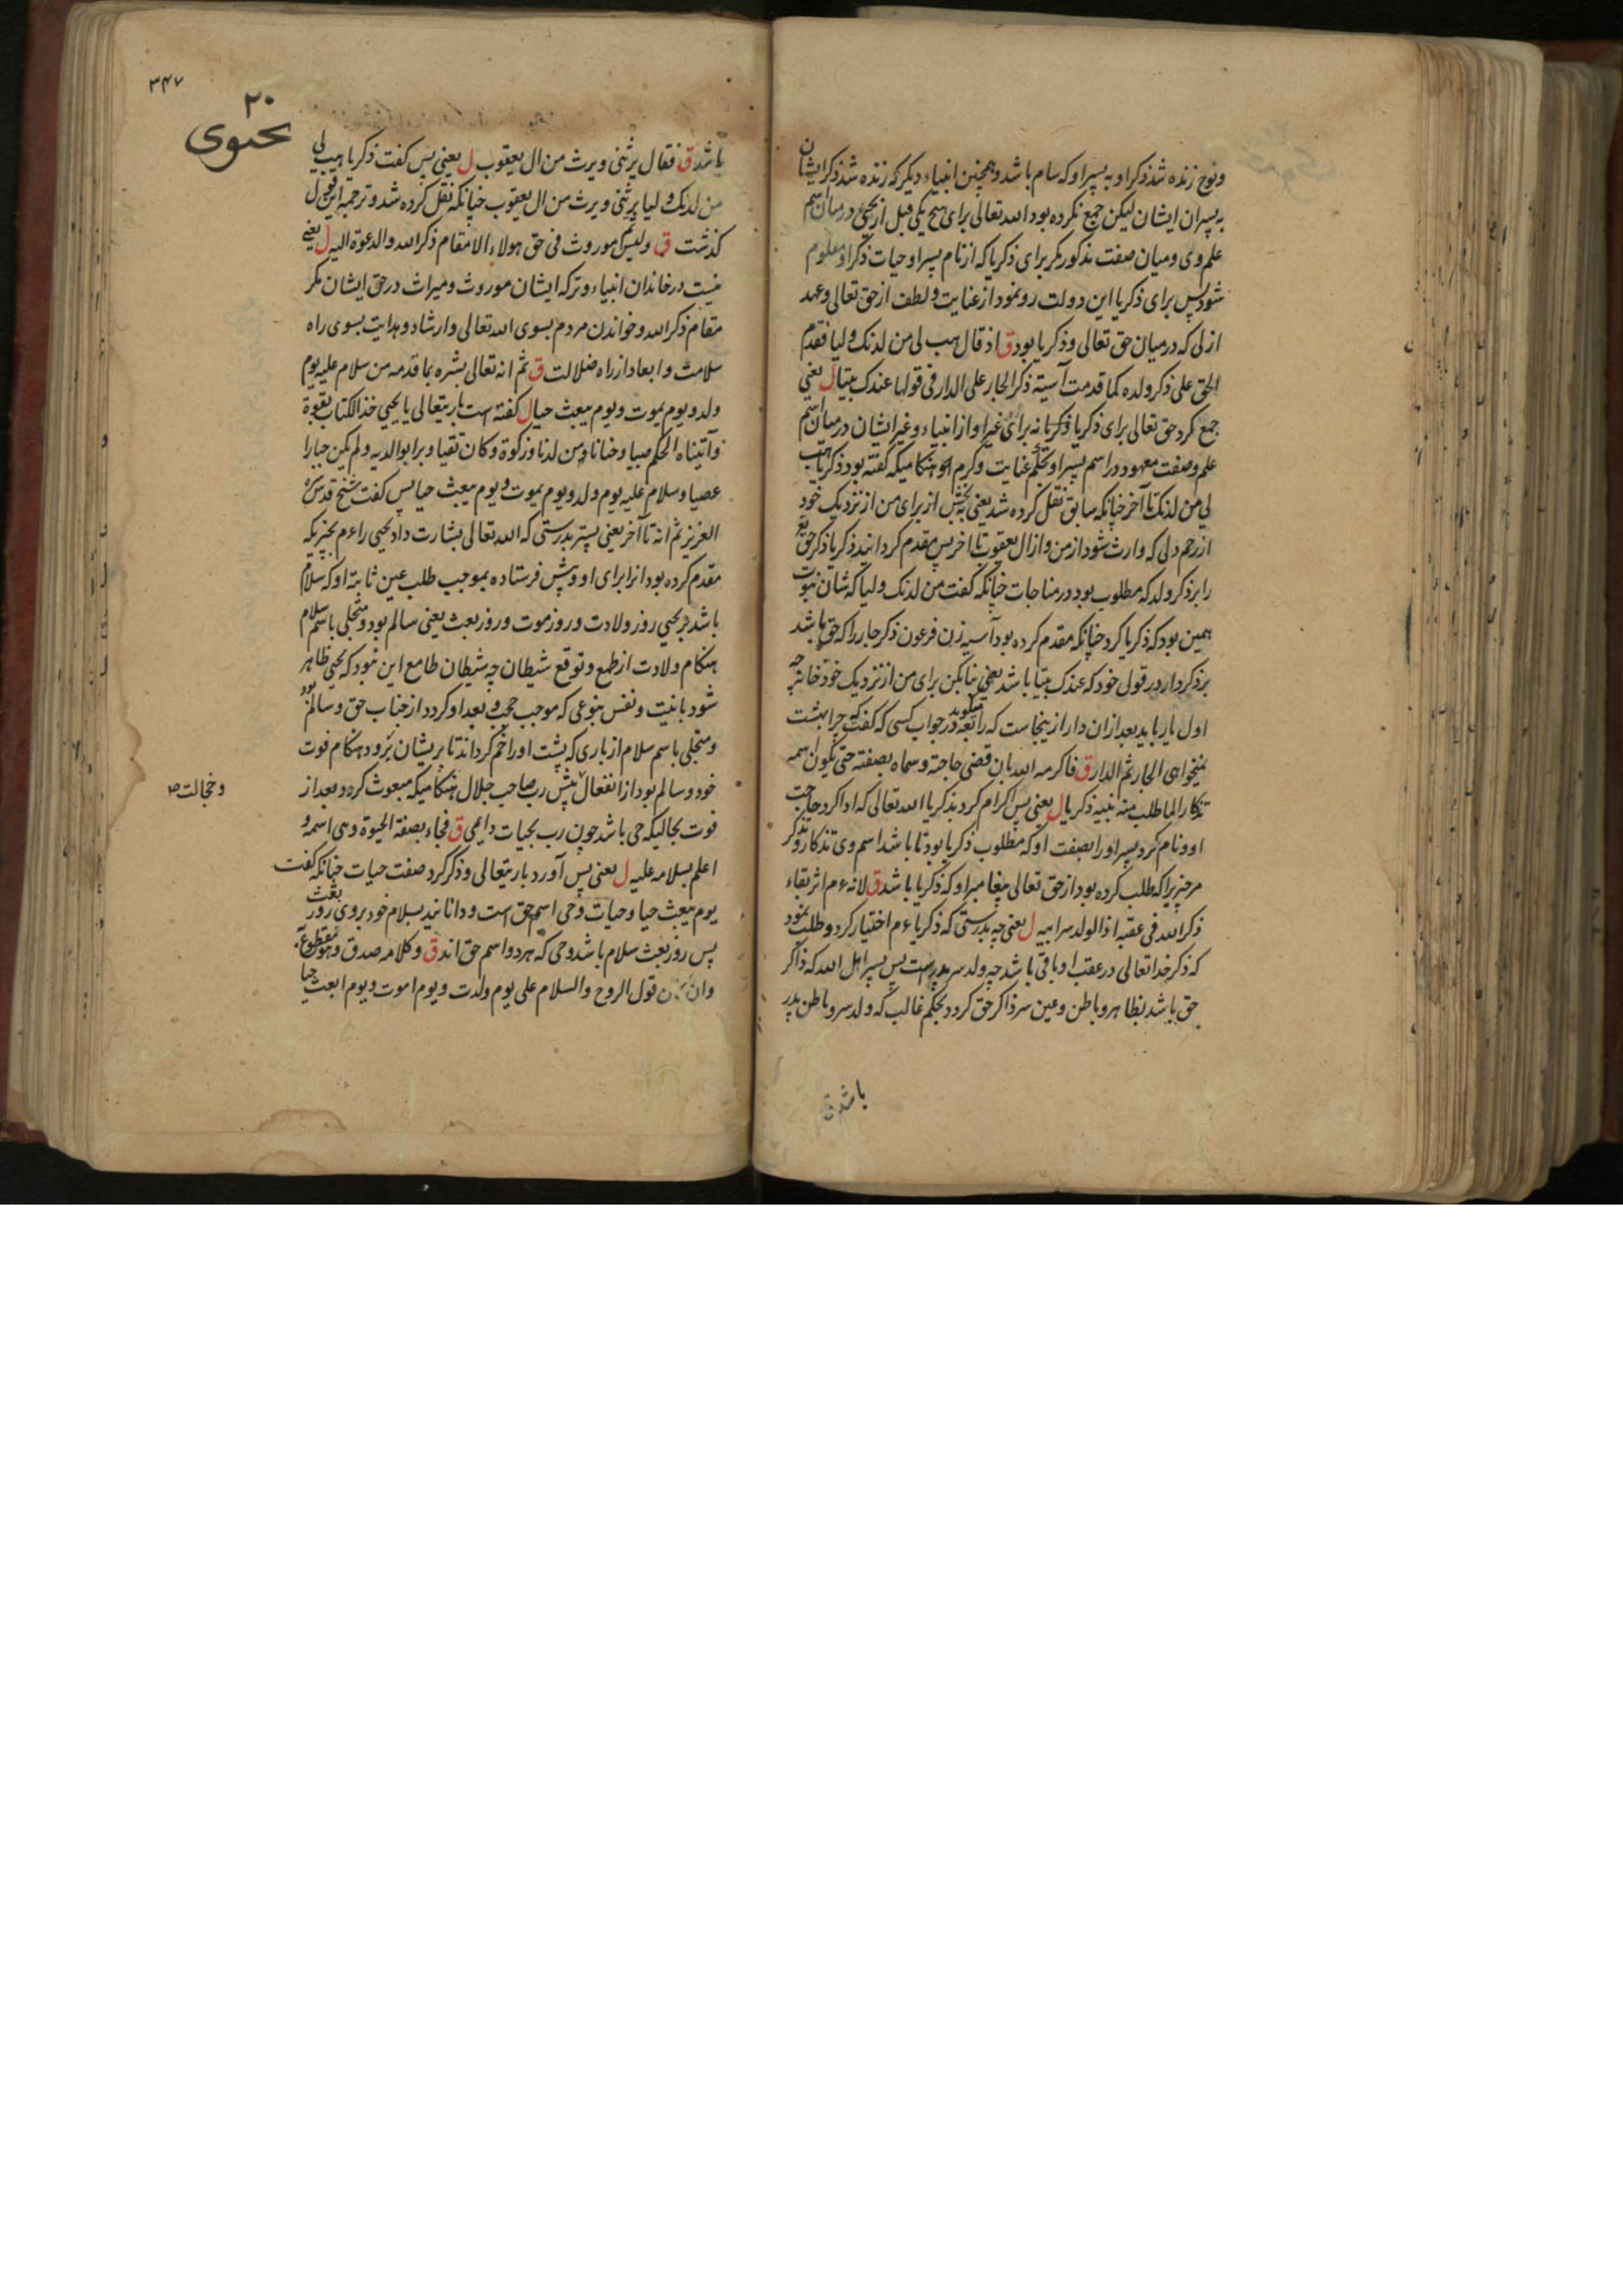 ونوح زنده شد ذکر او به پسر او که سام باشد و همچنین انبیاء دیگر که زنده شد ذکر ایشان
به پسران ایشان لیکن جمع نکرده بود الله تعالی برای هیچ یکی قبل از یحیی در میان اسم
علم وی و میان صفت مذکور مگر برای ذکریا که از نام پسر او حیات ذکر او معلوم
شود پس برای ذکریا این دولت رو نمود از عنایت و لطف از حق تعالی و عهد
ازلی که در میان حق تعالی و ذکریا بود ق اذ قال هب لی من لدنک ولیا فقدم
الحق علی ذکر ولده کما قدمت آسیة ذکر الجار علی الدار فی قولها عندک بیتا ل یعنی
جمع کرد حق تعالی برای ذکریا ذکریا نه برای غیر او از انبیاء و غیر ایشان در میان اسم
علم و صفت معهود در اسم پسر او بحکم عنایت و کرم او هنگامیکه گفته بود ذکریا هب
لی من لدنک تا آخر چنانکه سابق نقل کرده شد یعنی بخش از برای من از نزدیک خود
از رحم دلی که وارث شود از من و از ال یعقوب تا اخر پس مقدم گردانید ذکریا ذکر حق
را بر ذکر ولد که مطلوب بود در مناجات چنانکه گفت من لدنک ولیا که شان نبوت
همین بود که ذکریا کرد چنانکه مقدم کرده بود آسیه زن فرعون ذکر جار را که حق باشد
بر ذکر دار در قول خود که عندک بیتا باشد یعنی بنا بکن برای من از نزدیک خود خانه چه
اول یار باید بعد ازان دار از ینجاست که رابعه میگوید در جواب کسی که گفت که چرا بهشت
نمیخواهی الجار ثم الدار ق فاکرمه الله بان قضی حاجته و سماه بصفته حتی یکون اسمه
تذکارا لما طلب منه نبیه ذکریا ل یعنی پس اکرام کرد بذکریا الله تعالی که ادا کرد حاجت
او و نام کرد پسر او را بصفت او که مطلوب ذکریا بود تا باشد اسم وی تذکار و تذکر
مر چیزیرا که طلب کرده بود از حق تعالی پیغامبر او که ذکریا باشد ق لانه ءم اثر بقاء
ذکر الله فی عقبه اذ الولد سر ابیه ل یعنی چه بدرستی که ذکریا ءم اختیار کرد و طلب نمود
که ذکر خدا تعالی در عقب او باقی باشد چه ولد سر پدرست پس پسر اهل الله که ذاکر
حق باشد بظاهر و باطن و عین سر ذاکر حق گردد بحکم غالب که ولد سر و باطن پدر
باشد ق
۳۴۷
۲۰
یحیوی
باشد ق فقال یرثنی و یرث من ال یعقوب ل یعنی پس گفت ذکریا هب لی
من لدنک ولیا یرثنی و یرث من ال یعقوب چنانکه نقل کرده شد و ترجمه این قول
گذشت ق و لیس موروث فی حق هولاء الا مقام ذکر الله و الدعوة الیه ل یعنی
نیست در خاندان انبیاء و ترکه ایشان موروث و میراث در حق ایشان مگر
مقام ذکر الله و خواندن مردم بسوی الله تعالی و ارشاد و هدایت بسوی راه
سلامت و ابعاد از راه ضلالت ق ثم انه تعالی بشره بما قدمه من سلام علیه یوم
ولد و یوم یموت و یوم یبعث حیا ل گفته است باریتعالی یا یحیی خذ الکتاب بقوة
و آتیناه الحکم صبیا و حنانا من لدنا و زکوة و کان تقیا و برا بوالدیه و لم یکن جبارا
عصیا و سلام علیه یوم ولد و یوم یموت و یوم یبعث حیا پس گفت شیخ قدس سره
العزیز ثم انه تا آخر یعنی پستر بدرستی که الله تعالی بشارت داد یحیی را ءم بچیزیکه
مقدم کرده بود انرا برای او و پیش فرستاده بموجب طلب عین ثابته او که سلام
باشد بر یحیی روز ولادت و روز موت و روز بعث یعنی سالم بود و متجلی باسم سلام
هنگام ولادت از طمع و توقع شیطان چه شیطان طامع این نبود که یحیی ظاهر
شود بانیت و نفس بنوعی که موجب حجب و بعد او گردد از جناب حق و سالم بود
و متجلی باسم سلام از باری که پشت او را خم گرداند تا پریشان برود هنگام فوت
خود و سالم بود از انفعال پیش رب صاحب جلال هنگامیکه مبعوث گردد بعد از
و خجالت ص
فوت بحالیکه حی باشد چون رب بحیات دایمی ق فجاء بصفة الحیوة و هی اسمه و
اعلم بسلامه علیه ل یعنی پس آورد باریتعالی و ذکر کرد صفت حیات چنانکه گفت
یوم یبعث حیا و حیات و حی اسم حق است و دانانید بسلام خود بر وی روز بعث
پس روز بعث سلام باشد و حی که هر دو اسم حق اند ق و کلامه صدق و هو مقطوع به
وان کان قول الروح و السلام علی یوم ولدت و یوم اموت و یوم ابعث حیا